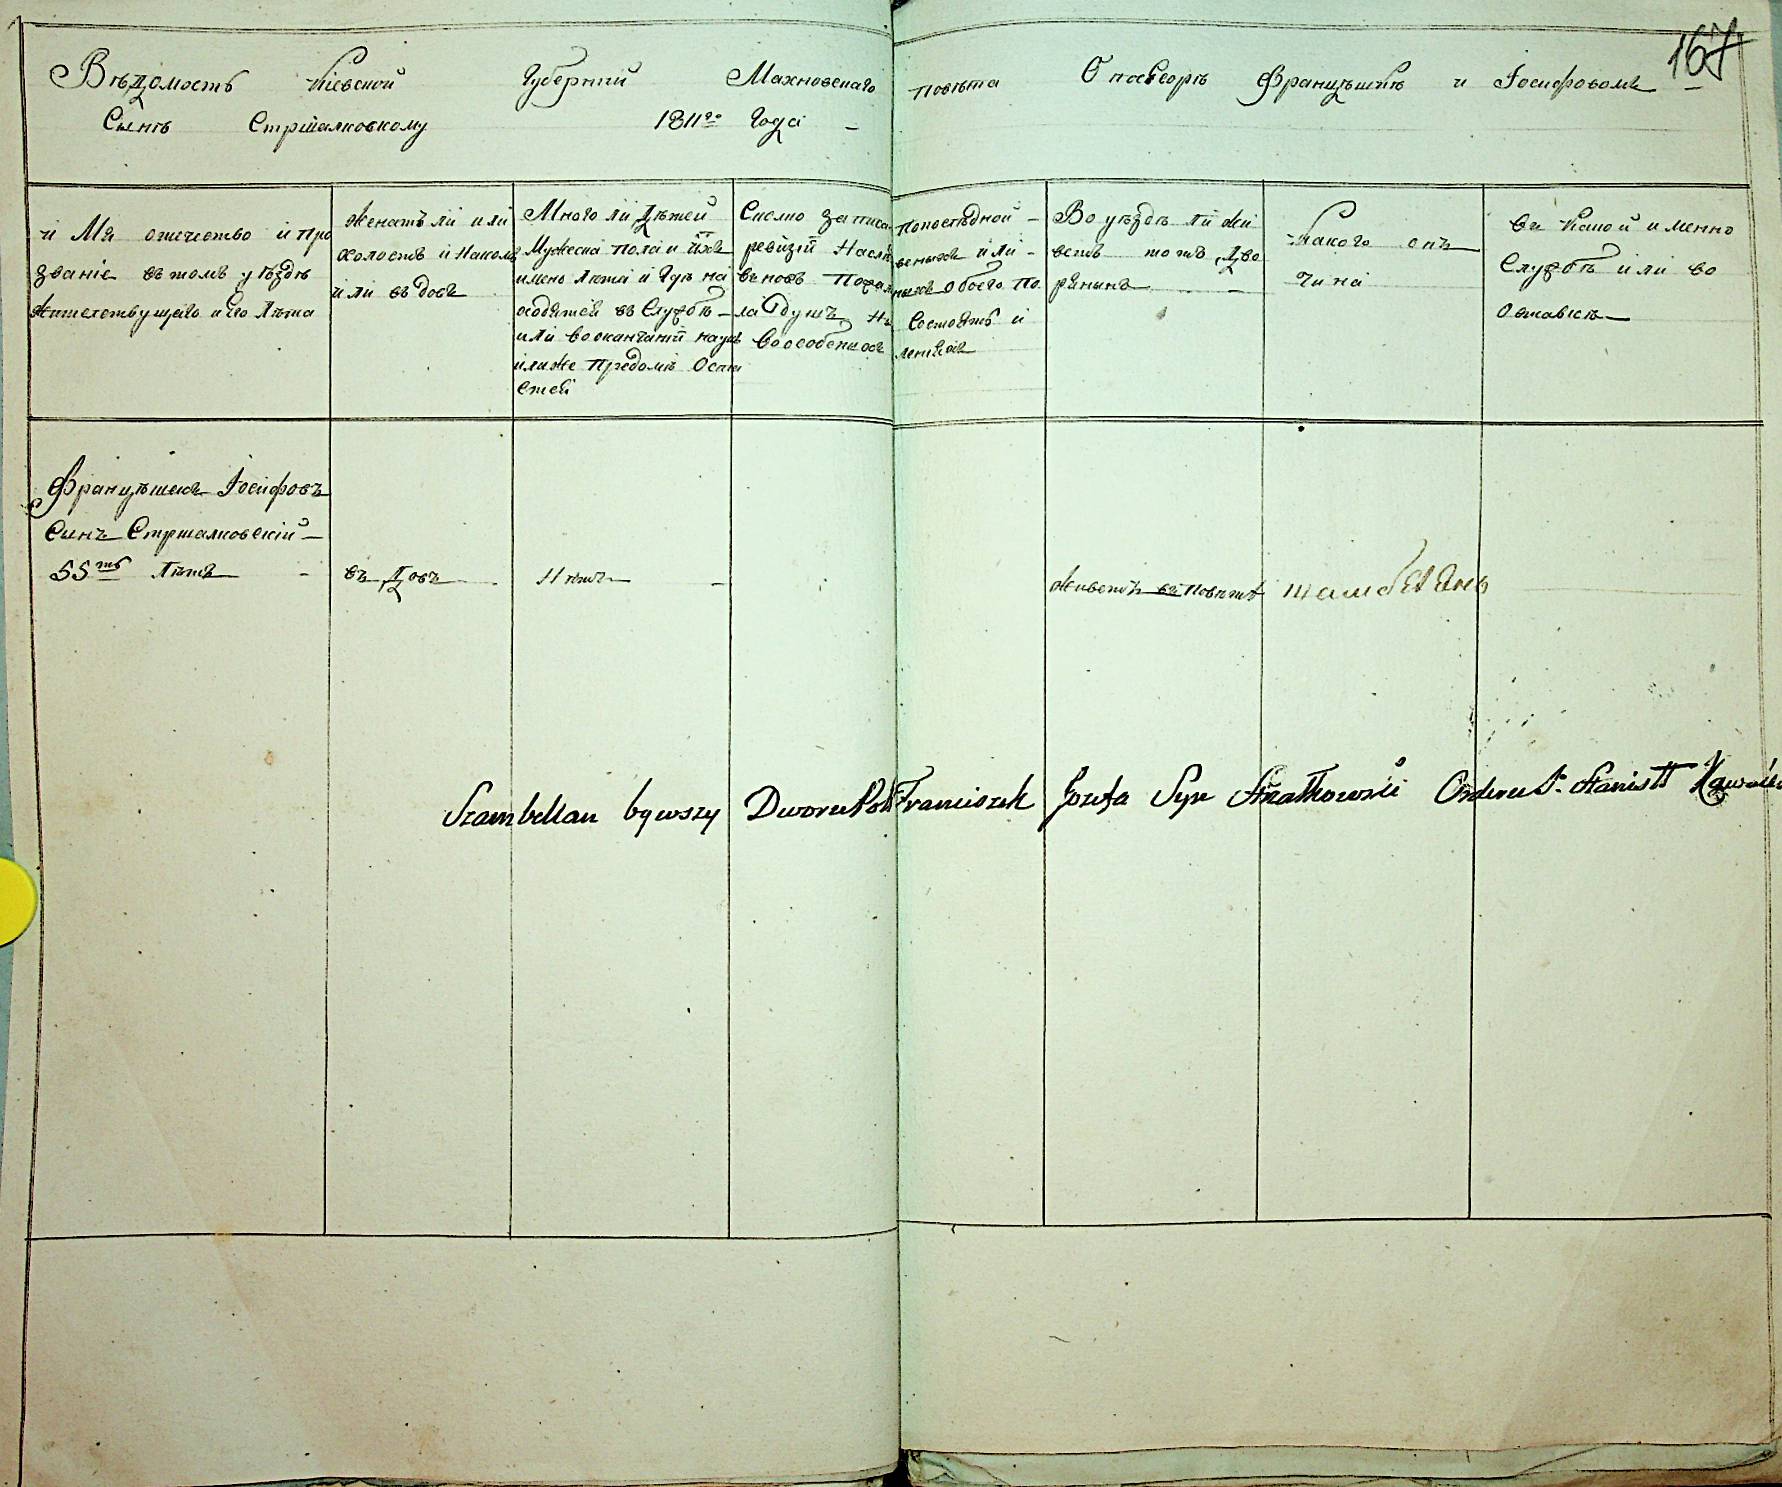 167
Вѣдомость Кіевской Губерній Махновскаго повѣта О Францѣшкѣ и Іосифовомъ
Сынѣ Стршалковкому 1811го Года
и Мя отичество и про
званіе въ томъ уѣздѣ
жителствующаго и его Лѣта
женатъ ли или
холостъ и Наком
или въ довъ
Много ли Дѣтей
Мужеска пола и ихъ
имено лѣта и гдѣ на
ходятей въ Службѣ
или во окончаній наукъ
илиже При домѣ
стей
Сколко записа
ревизій
вновъ
ла Душъ
во особенност
по послѣдной
или
обоего по
Состоятъ и
Во уѣздѣ ли жи
ветъ тотъ Дво
рянинъ
Какого онъ
чина
въ Какой именно
Службѣ или во
отставкѣ
Францѣшекъ Іосифовъ
Сынъ Стршалковскій
55ть Лѣтъ
въ Довъ
Нѣтъ
живетъ въ повѣтѣ
шамбелянъ
Szambellan bywszy Dworu Pols Franciszek Jozefa Syn Strzałkowski Orderu S. Stanisł Kawaler